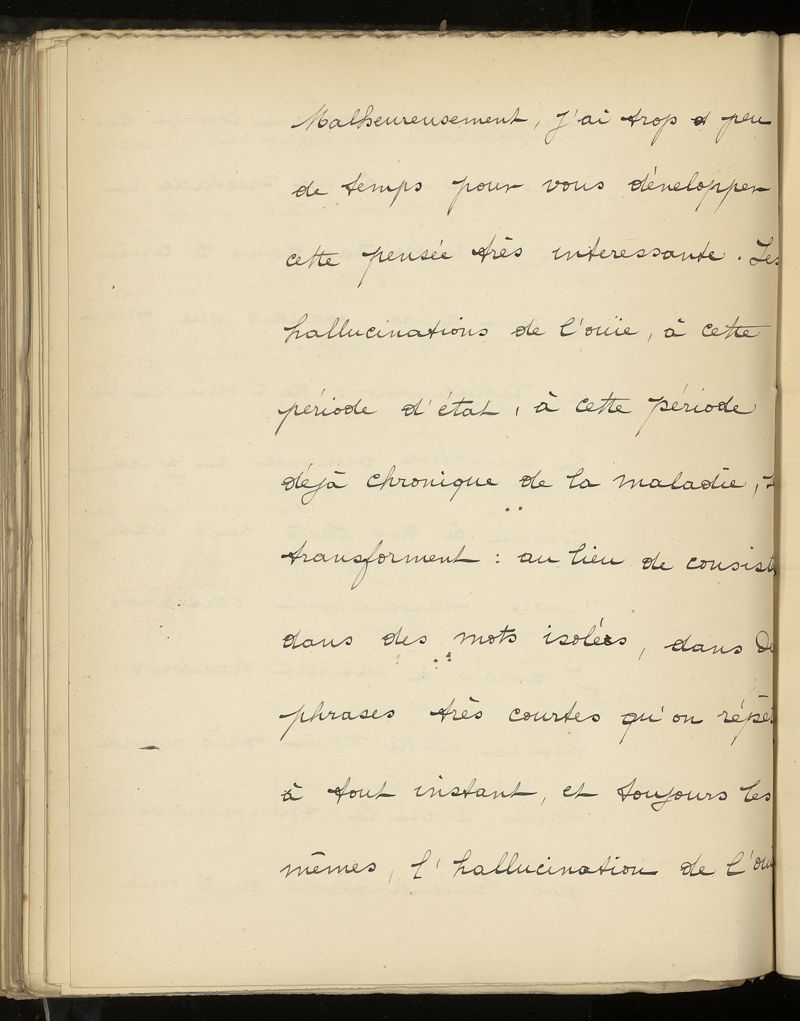 Malheureusement, j'ai trop peu
de temps pour vous développer
cette pensée très interessante. Les
hallucinations de l'ouïe, à cette
période d'état, à cette période
déjà chronique de la maladie,
transforment : au lieu de consist
dans des mots isolés, dans de
phrases très courtes qu'on répèt
à tout instant, et toujours les
mêmes, l'hallucination de l'ouï